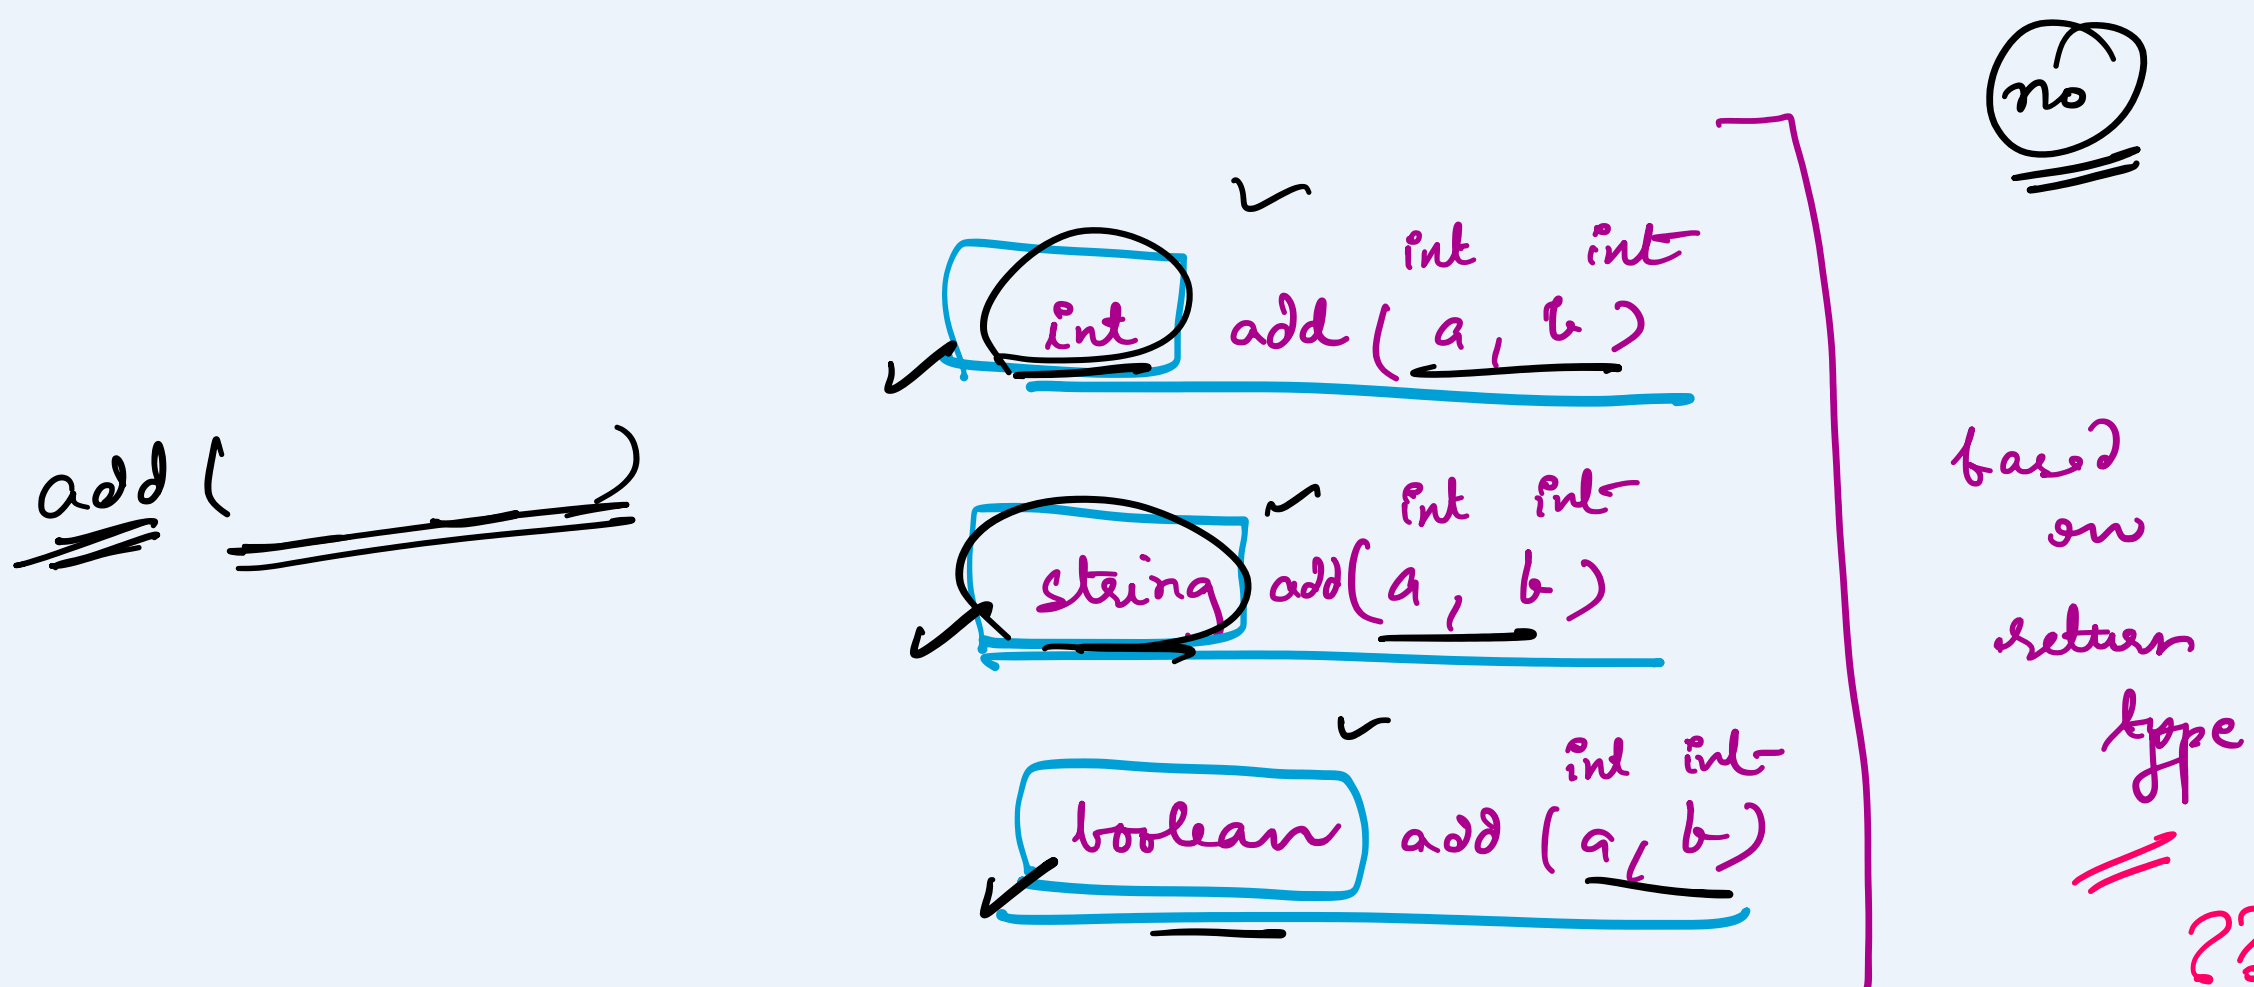 no
int int
int add ( a, b )
add ( )
int int
string add( a, b )
int int
boolean add ( a, b )
based
on
return
type
??